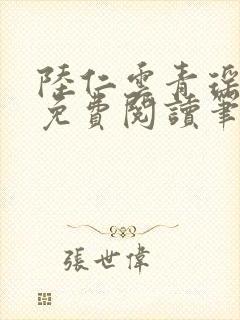 陸仁雲青瑶
免費閱讀筆
張世偉